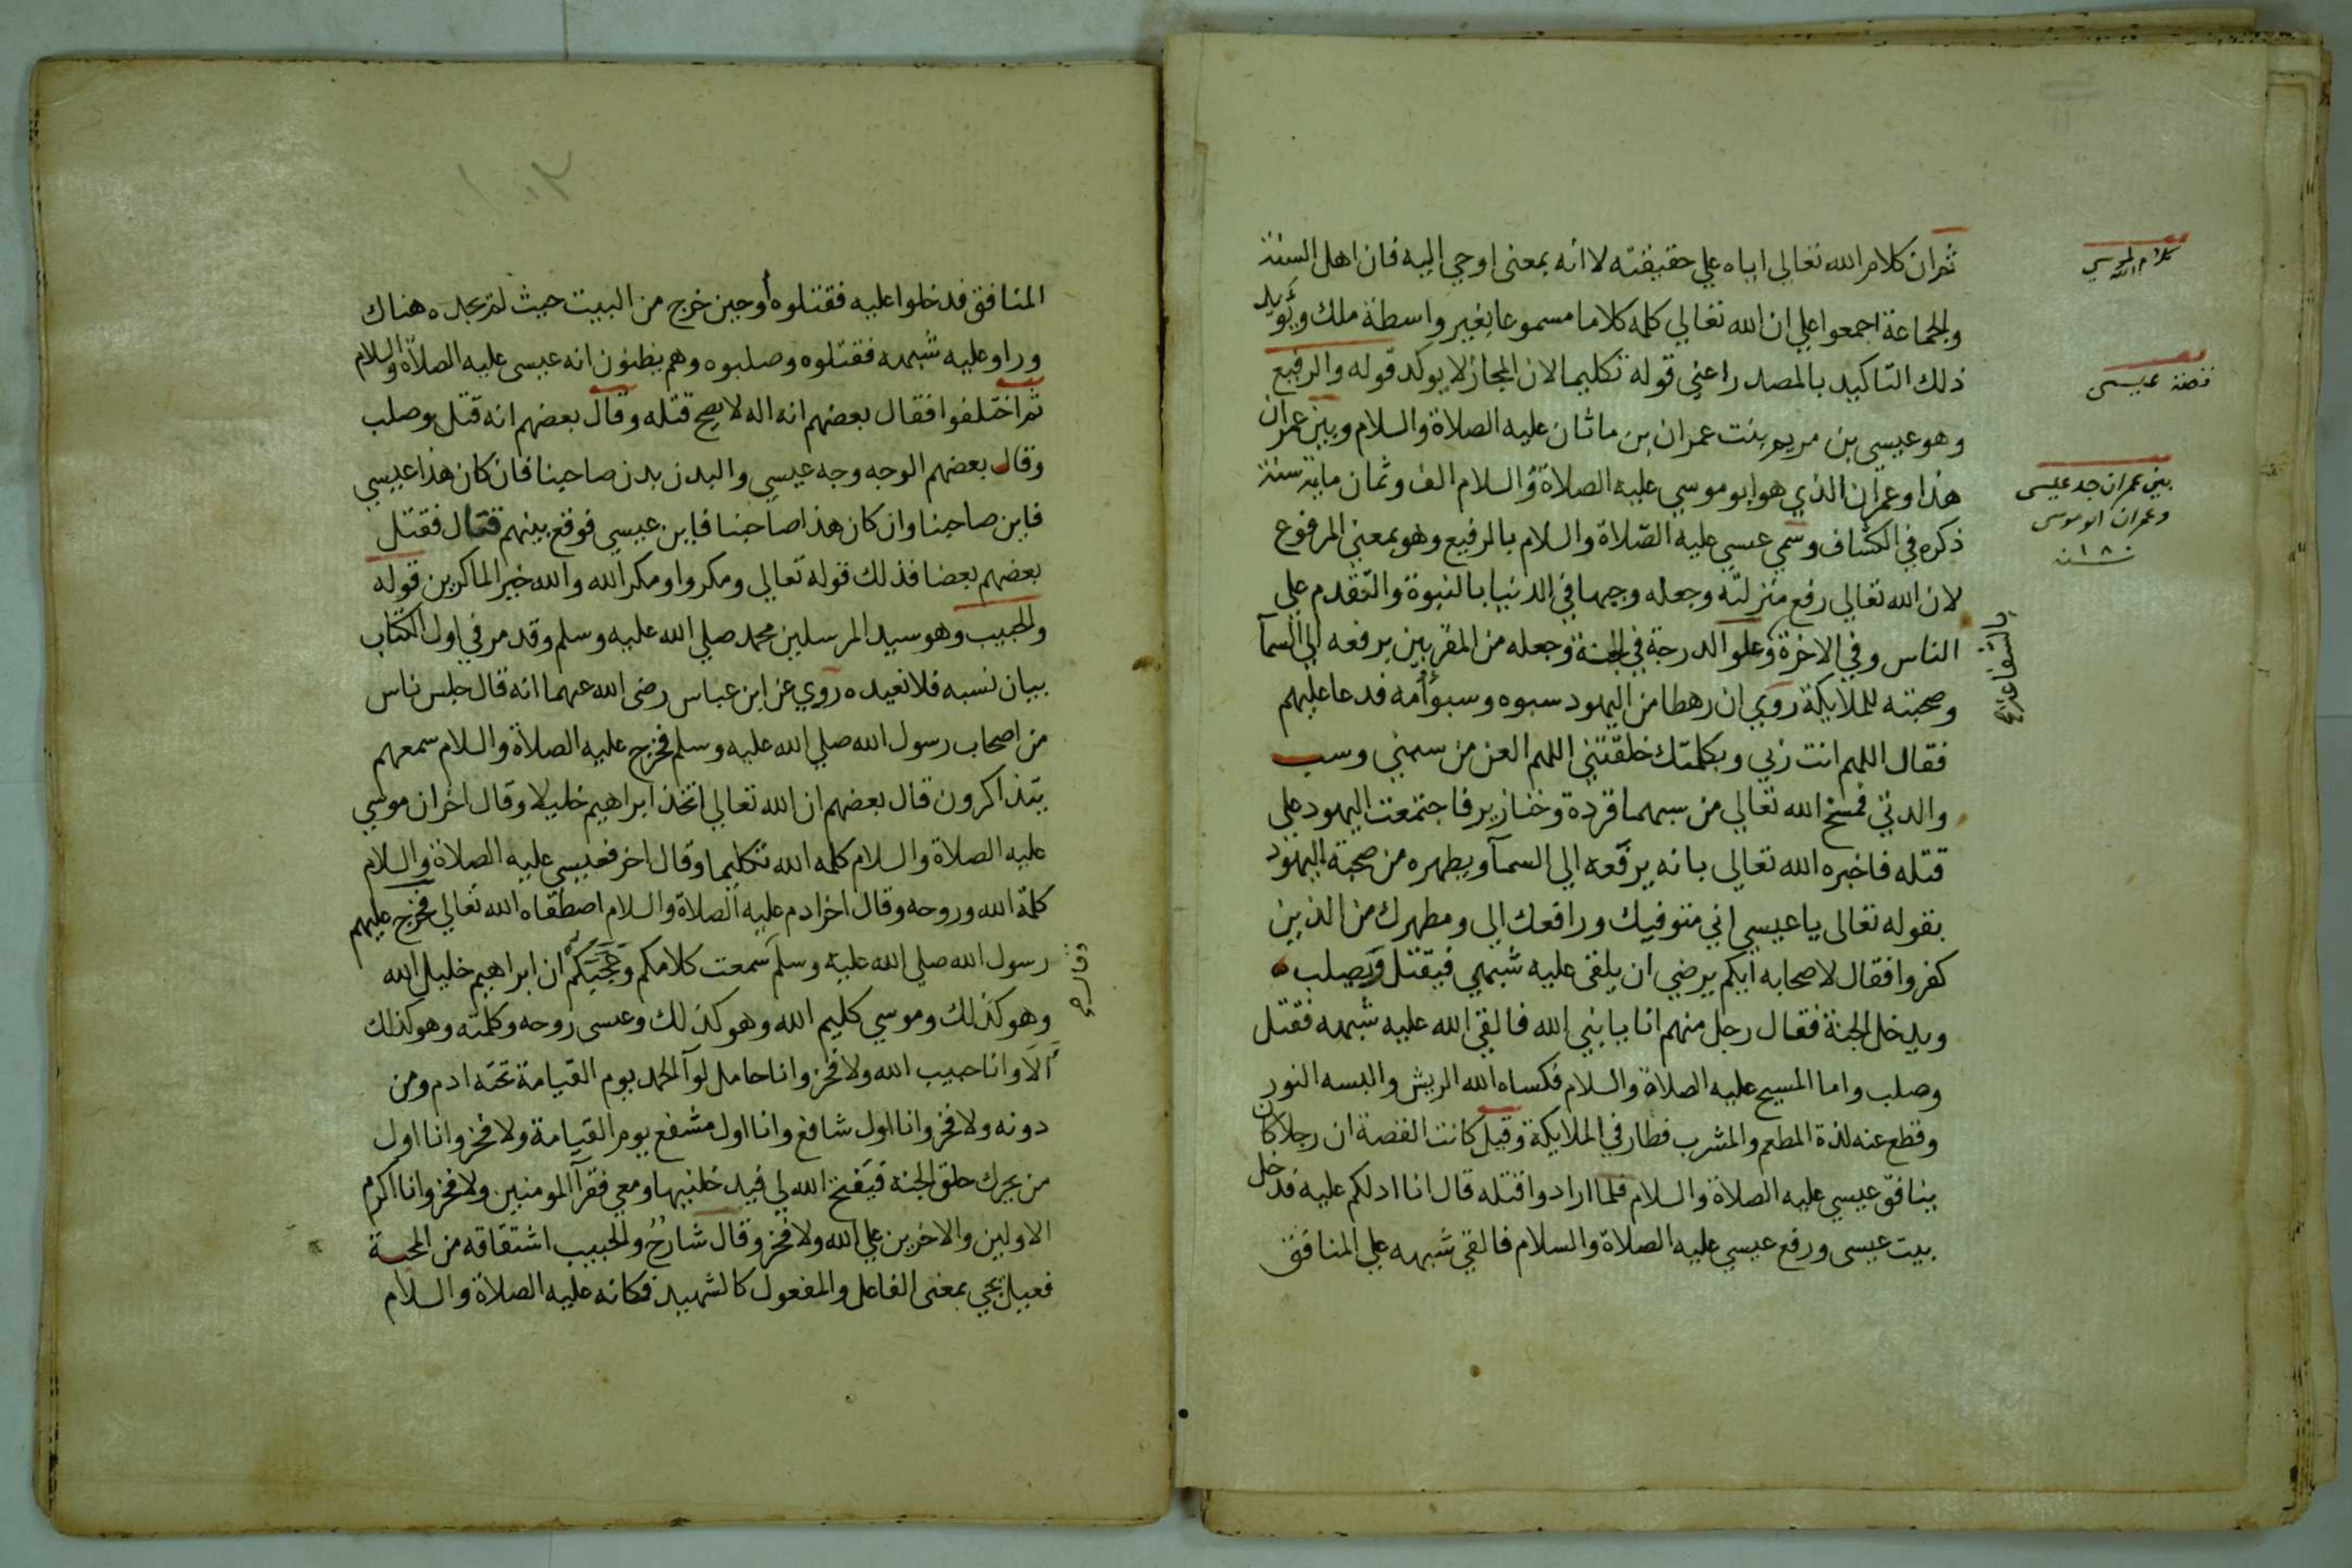 ثم ان كلام الله تعالى اياه علي حقيقته لا انه بمعنى اوحي اليه فان اهل السنة
والجماعة اجمعوا علي ان الله تعالي كلمه كلاما مسموعا بغير واسطة ملك ويؤيد
ذلك التاكيد بالمصدر اعني قوله تكليما لان المجاز لا يوكد قوله والرفيع
وهو عيسي بن مريم بنت عمران بن ماثان عليه الصلاة والسلام وبين عمران
هذا وعمران الذي هو ابو موسي عليه الصلاة والسلام الف وثمان ماية سنة
ذكره في الكشاف وسمي عيسي عليه الصلاة والسلام بالرفيع وهو بمعني المرفوع
لان الله تعالي رفع منزلته وجعله وجيها في الدنيا بالنبوة والتقدم علي
الناس وفي الاخرة وعلو الدرجة في الجنة وجعله من المقربين برفعه الي السمآ
وصحبته للملايكة روي ان رهطا من اليهود سبوه وسبوا أمه فدعا عليهم
فقال اللهم انت ربي وبكلمتك خلقتني اللهم العن من سبني وسب
والدتي فمسخ الله تعالي من سبهما قردة وخنازير فاجتمعت اليهود علي
قتله فاخبره الله تعالى بانه يرفعه الي السمآ ويطهره من صحبة اليهود
بقوله تعالى يا عيسي اني متوفيك ورافعك الى ومطهرك من الذين
كفروا فقال لاصحابه ايكم يرضي ان يلقى عليه شبهي فيقتل ويصلب
ويدخل الجنة فقال رجل منهم انا يا نبي الله فالقي الله عليه شبهه فقتل
وصلب واما المسيح عليه الصلاة والسلام فكساه الله الريش والبسه النور
وقطع عنه لذة المطعم والمشرب فطار في الملايكة وقيل كانت القصة ان رجلا كان
ينافق عيسي عليه الصلاة والسلام فلما ارادوا قتله قال انا ادلكم عليه فدخل
بيت عيسى ورفع عيسي عليه الصلاة والسلام فالقي شبهه علي المنافق
كلام الله لموسي
قصة عيسى
بين عمران جد عيسى
وعمران ابو موسى
١٨٠٠ سنة
بالشفاعة ع
المنافق فدخلوا عليه فقتلوه أو حين خرج من البيت حيث لم يجده هناك
وراوا عليه شبهه فقتلوه وصلبوه وهم يظنون انه عيسى عليه الصلاة والسلام
ثم اختلفوا فقال بعضهم انه اله لا يصح قتله وقال بعضهم انه قتل وصلب
وقال بعضهم الوجه وجه عيسي والبدن بدن صاحبنا فان كان هذا عيسي
فاين صاحبنا وان كان هذا صاحبنا فاين عيسي فوقع بينهم قتال فقتل
بعضهم بعضا فذلك قوله تعالي ومكروا ومكر الله والله خير الماكرين قوله
والحبيب وهو سيد المرسلين محمد صلي الله عليه وسلم وقد مر في اول الكتاب
بيان نسبه فلا نعيده روي عن ابن عباس رضى الله عنهما انه قال جلس ناس
من اصحاب رسول الله صلي الله عليه وسلم فخرج عليه الصلاة والسلام سمعهم
يتذاكرون قال بعضهم ان الله تعالي اتخذ ابراهيم خليلا وقال اخر ان موسي
عليه الصلاة والسلام كلمه الله تكليما وقال اخر فعيسي عليه الصلاة والسلام
كلمة الله وروحه وقال اخر ادم عليه الصلاة والسلام اصطفاه الله تعالي فخرج عليهم
رسول الله صلي الله عليه وسلم سمعت كلامكم وعجبكم ان ابراهيم خليل الله
وهو كذلك وموسي كليم الله وهو كذلك وعيسى روحه وكلمته وهو كذلك
ألا وانا حبيب الله ولا فخر وانا حامل لوآ الحمد يوم القيامة تحته ادم ومن
دونه ولا فخر وانا اول شافع وانا اول مشفع يوم القيامة ولا فخر وانا اول
من يحرك حلق الجنة فيفتح الله لي فيدخلنيها ومعي فقرآ المومنين ولا فخر وانا اكرم
الاولين والاخرين علي الله ولا فخر وقال شارح والحبيب اشتقاقه من المحبة
فعيل يجي بمعنى الفاعل والمفعول كالشهيد فكانه عليه الصلاة والسلام
وقال ع